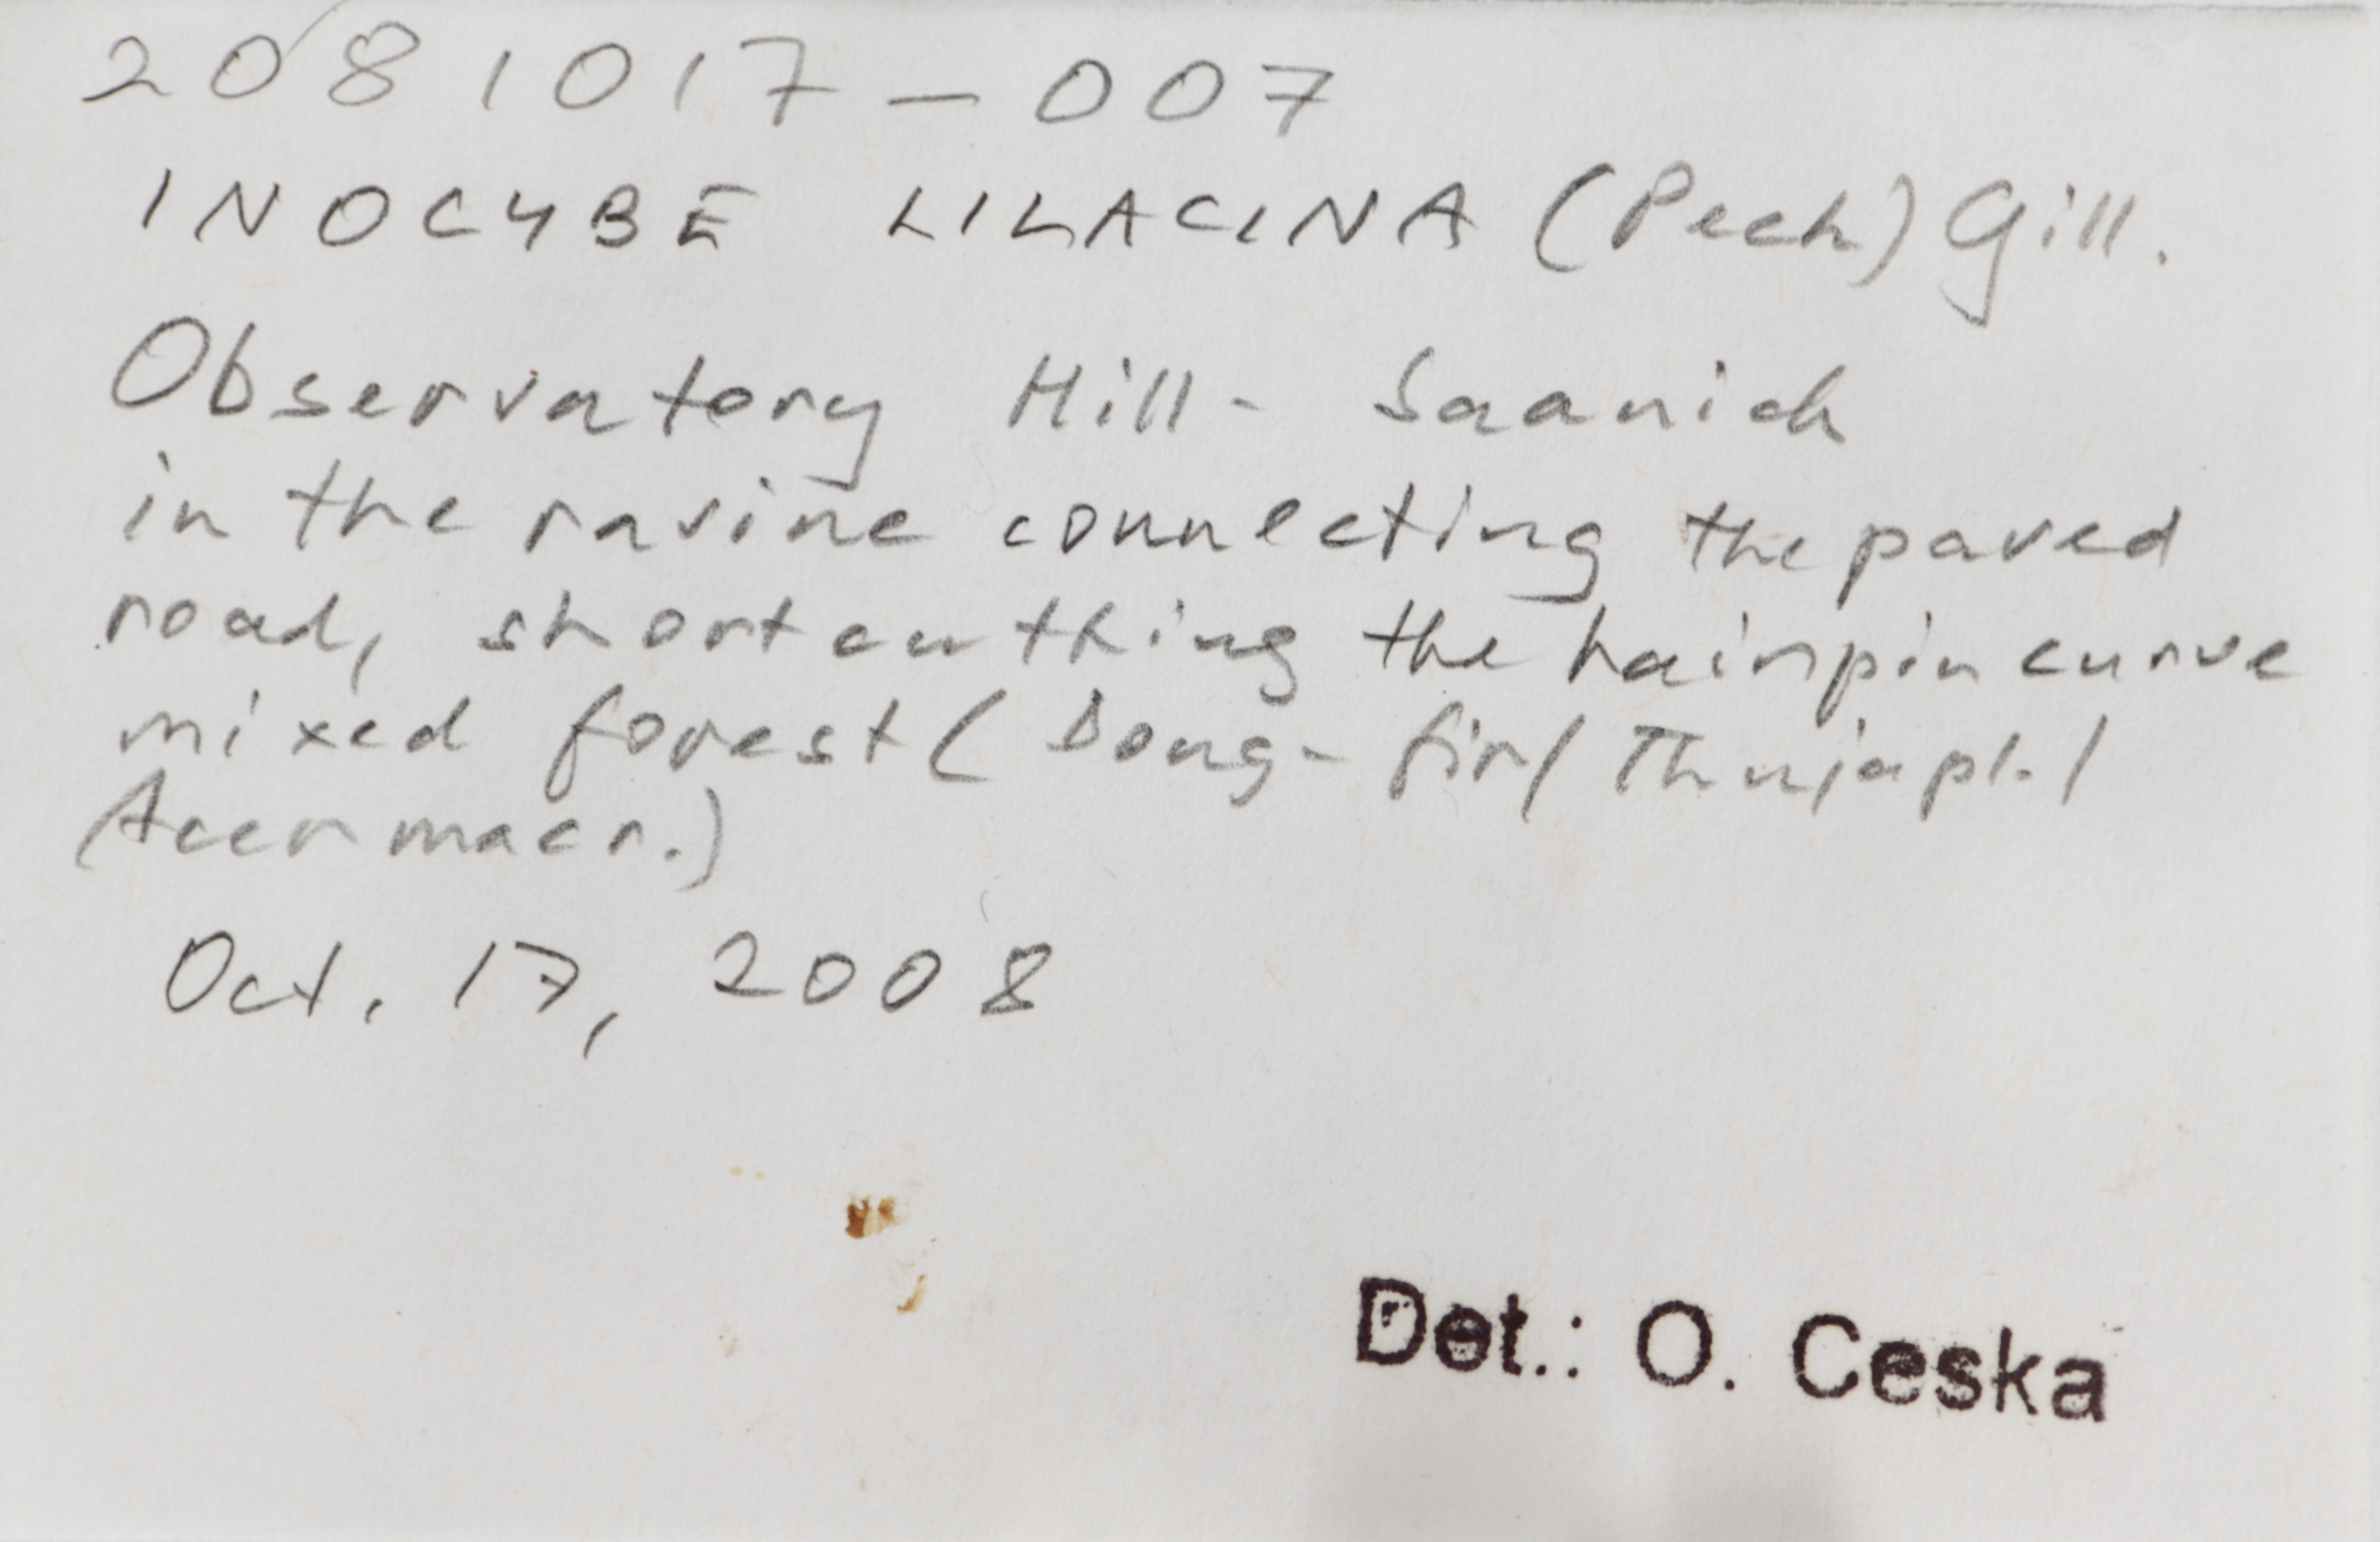 2081017-007
INOCYBE LILACINA (Peck) Gill.
Observatory Hill - Saanich
in the ravine connecting the paved
road, shortcutting the hairpin curve
mixed forest ( Doug-fir / Thuja pl. /
Acer macr.)
Oct. 17, 2008
Det.: O. Ceska